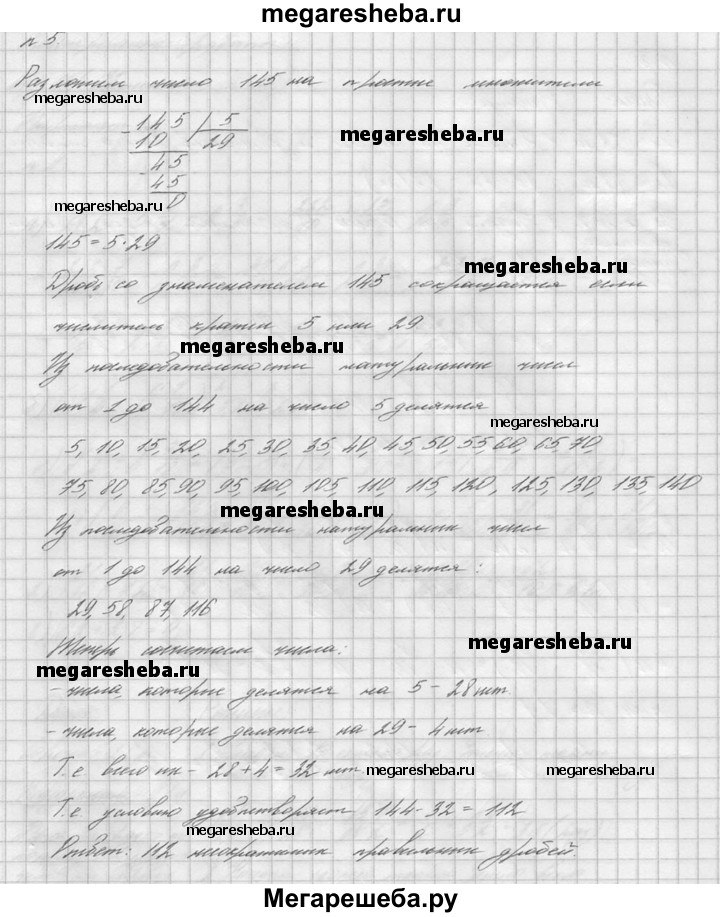 megaresheba.ru
n 5.
Разложим число 145 на простые множители
megaresheba.ru
- 145 | 5
megaresheba.ru
10 29
45
- 45
megaresheba.ru
0
145 = 5 · 29
megaresheba.ru
Дробь со знаменателем 145 сокращается если
числитель кратен 5 или 29
megaresheba.ru
Из последовательности натуральных чисел
от 1 до 144 на число 5 делятся
megaresheba.ru
5, 10, 15, 20, 25, 30, 35, 40, 45, 50, 55, 60, 65, 70
75, 80, 85, 90, 95, 100, 105, 110, 115, 120, 125, 130, 135, 140
megaresheba.ru
Из последовательности натуральных чисел
от 1 до 144 на число 29 делятся:
29, 58, 87, 116
Теперь сосчитаем числа:
megaresheba.ru
megaresheba.ru
- числа, которые делятся на 5 - 28 шт
- числа, которые делятся на 29 - 4 шт
Т.е всего их - 28 + 4 = 32 шт.
megaresheba.ru
megaresheba.ru
Т.е. условию удовлетворяет 144 - 32 = 112
megaresheba.ru
Ответ: 112 несократимых правильных дробей.
Мегарешеба.ру